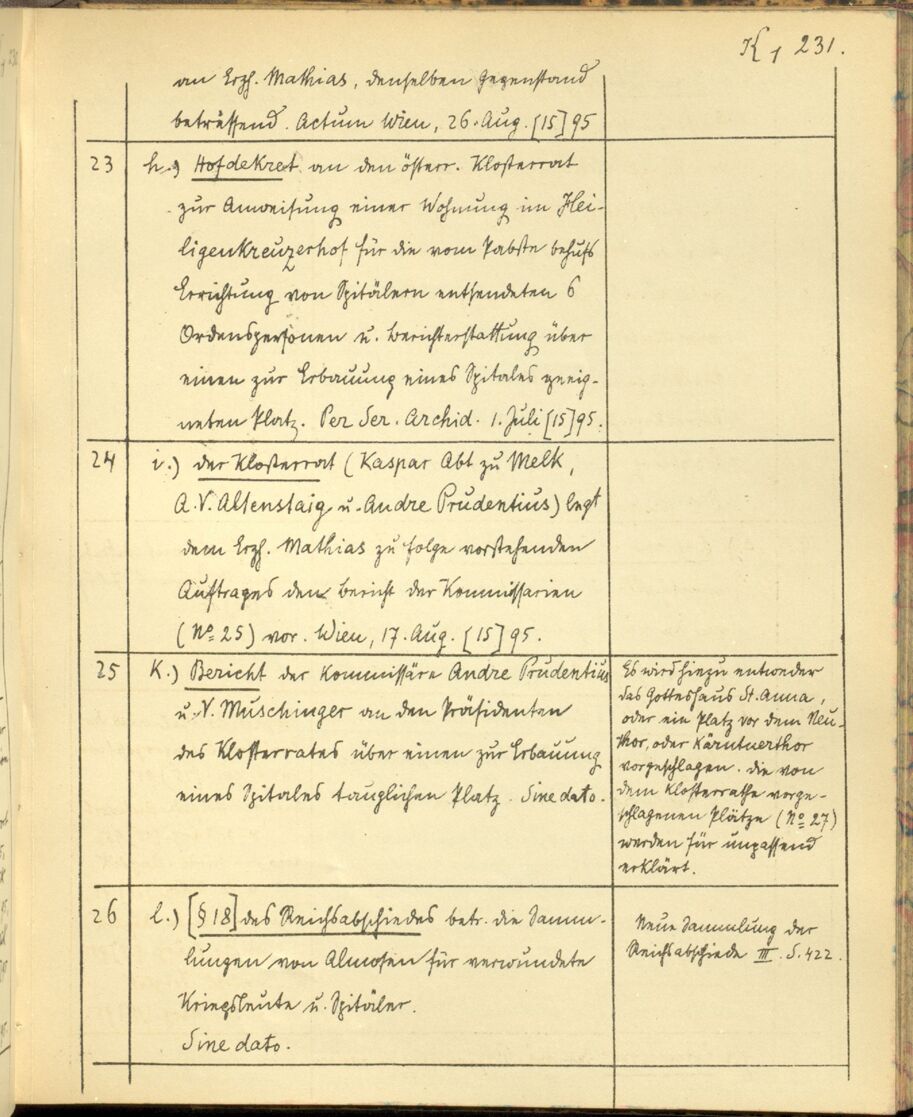 K 1 231.
an Erzh. Mathias, denselben Gegenstand
betreffend. Actum Wien, 26. Aug. [15]95
23 h.) Hofdekret an den österr. Klosterrat
zur Anweisung einer Wohnung im Hei-
ligenkreuzerhof für die vom Pabste behufs
Errichtung von Spitälern entsendeten 6
Ordenspersonen u. Berichterstattung über
einen zur Erbauung eines Spitales geeig-
neten Platz. Per Ser. Archid. 1. Juli [15]95.
24 i.) der Klosterrat (Kaspar Abt zu Melk,
A. V. Altenstaig u. Andre Prudentius) legt
dem Erzh. Mathias zu folge vorstehenden
Auftrages den Bericht der Kommissarien
(No 25) vor. Wien, 17. Aug. [15]95.
25 K.) Bericht der Kommissäre Andre Prudentius
u. V. Muschinger an den Präsidenten
des Klosterrates über einen zur Erbauung
eines Spitales tauglichen Platz. Sine dato.
Es wird hiezu entweder
das Gotteshaus St. Anna,
oder ein Platz vor dem Neu-
thor, oder Kärntnerthor
vorgeschlagen. die von
dem Klosterrathe vorge-
schlagenen Plätze (No 27)
werden für unpassend
erklärt.
26 l.) [§ 18] des Reichsabschiedes betr. die Samm-
lungen von Almosen für verwundete
Kriegsleute u. Spitäler.
Sine dato.
Neue Sammlung der
Reichsabschiede III. S. 422.